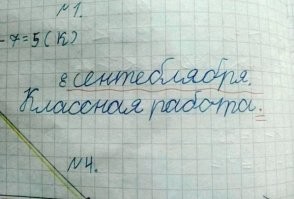 №1.
-7=5(К)
8 сентеблября.
Классная работа.
№4.